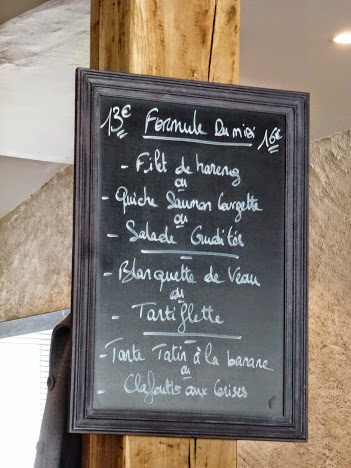 13€ Formule Du midi 16€
- Filet de hareng
ou
- Quiche Saumon Courgette
ou
- Salade Crudités
- Blanquette de Veau
ou
- Tartiflette
- Tarte Tatin à la banane
ou
- Clafoutis aux Cerises